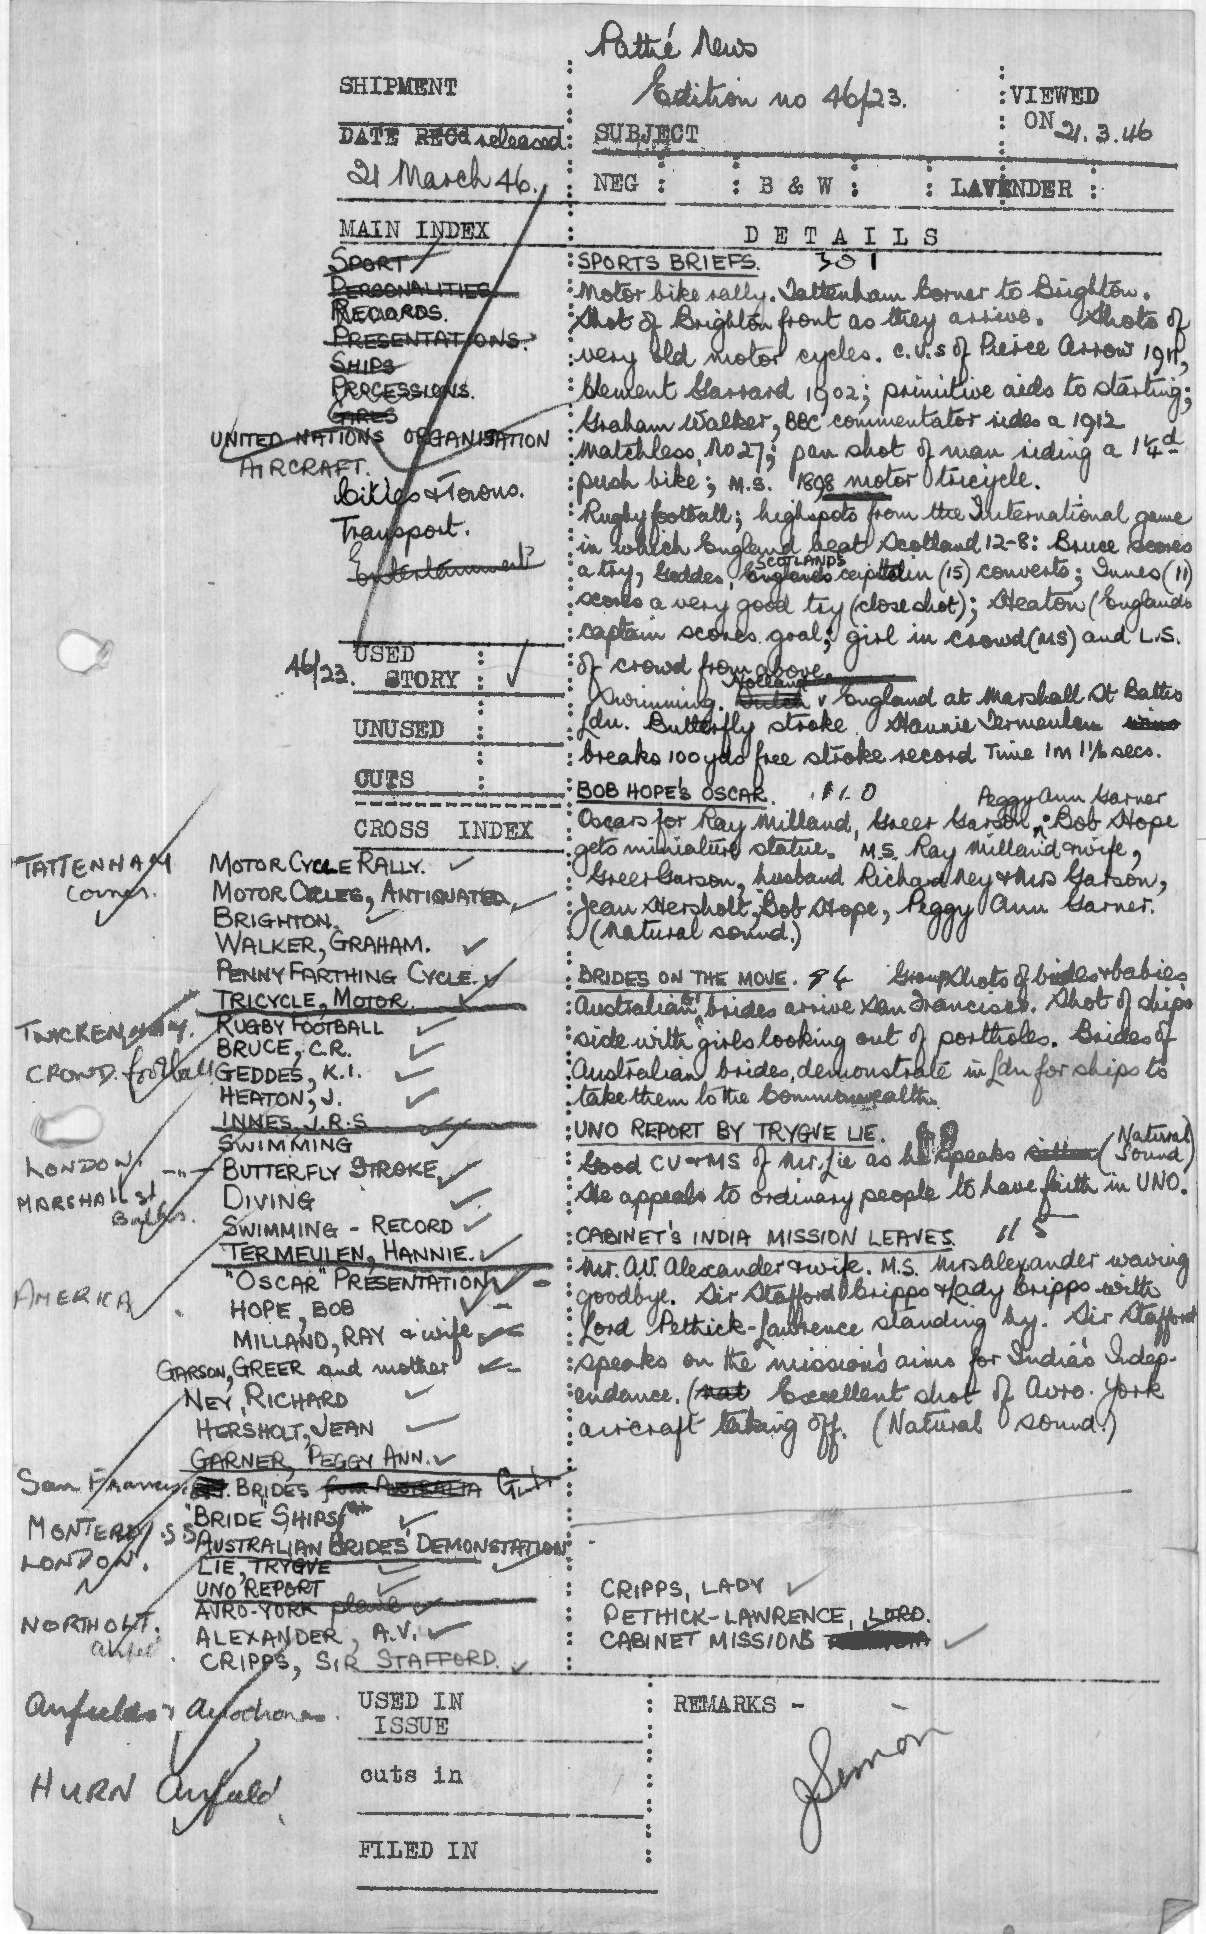 Pathé News
SHIPMENT
Edition no 46/23.
VIEWED
ON 21.3.46
DATE RECd released
SUBJECT
21 March 46.
NEG : : B & W : : LAVENDER :
MAIN INDEX
DETAILS
SPORT
PERSONALITIES
RECORDS.
PRESENTATIONS.
SHIPS
PROCESSIONS.
GIRLS
UNITED NATIONS ORGANISATION
AIRCRAFT.
Cities & Towns.
Transport.
Entertainment?
SPORTS BRIEFS. 301
Motor bike rally. Tattenham Corner to Brighton.
Shot of Brighton front as they arrive. Shots of
very old motor cycles. C.U.s of Pierce Arrow 1911,
Clement Garrard 1902; primitive aids to starting;
Graham Walker, BBC commentator rides a 1912
Matchless, No 27; pan shot of man riding a 1¼d
push bike; M.S. 1898 motor tricycle.
Rugby football; highspots from the International game
in which England beat Scotland 12-8: Bruce scores
a try, Geddes, Englands SCOTLANDS captain (15) converts; Innes (11)
scores a very good try (close shot); Heaton (Englands
captain scores goal; girl in crowd (MS) and L.S.
of crowd from above.
Swimming. Dutch Holland v England at Marshall St Baths
Ldn. Butterfly stroke. Hannie Termeulen
breaks 100 yds free stroke record Time 1m 1 1/6 secs.
46/23. USED
STORY
UNUSED
CUTS
CROSS INDEX
BOB HOPE'S OSCAR. 110
Peggy Ann Garner
Oscars for Ray Milland, Greer Garson, Bob Hope
gets miniature statue. M.S. Ray Milland & wife,
Greer Garson, husband Richard Ney & Mrs Garson,
Jean Hersholt, Bob Hope, Peggy Ann Garner.
(Natural sound.)
BRIDES ON THE MOVE. 94 Group Shots of brides & babies
Australian G.I. brides arrive San Francisco. Shot of ship's
side with girls looking out of portholes. Brides of
Australian brides, demonstrate in Ldn for ships to
take them to the Commonwealth.
UNO REPORT BY TRYGVE LIE.
Good CU & MS of Mr. Lie as he speaks (Natural
Sound)
He appeals to ordinary people to have faith in UNO.
CABINET'S INDIA MISSION LEAVES. 115
Mr. A.V. Alexander & wife. M.S. Mrs Alexander waving
goodbye. Sir Stafford Cripps & Lady Cripps with
Lord Pethick-Lawrence standing by. Sir Stafford
speaks on the mission's aims for India's Indep-
endance. (nat Excellent shot of Avro. York
aircraft taking off. (Natural sound.)
TATTENHAM
Corner.
MOTOR CYCLE RALLY.
MOTOR CYCLES, ANTIQUATED.
BRIGHTON.
WALKER, GRAHAM.
PENNY FARTHING CYCLE.
TRICYCLE, MOTOR.
TWICKENHAM.
RUGBY FOOTBALL
BRUCE, C.R.
CROWD. football
GEDDES, K.I.
HEATON, J.
INNES, J.R.S.
SWIMMING
LONDON.
BUTTERFLY STROKE
MARSHALL St
Baths.
DIVING
SWIMMING - RECORD
TERMEULEN, HANNIE.
"OSCAR" PRESENTATION
AMERICA
HOPE, BOB
MILLAND, RAY & wife
GARSON, GREER and mother
NEY, RICHARD
HERSHOLT, JEAN
GARNER, PEGGY ANN.
San Francisco
BRIDES from AUSTRALIA G.I.
"BRIDE" SHIPS
MONTEREY S.S.
LONDON.
AUSTRALIAN BRIDES' DEMONSTATION
LIE, TRYGVE
UNO REPORT
AVRO-YORK plane
NORTHOLT.
ALEXANDER, A.V.
CRIPPS, SIR STAFFORD.
CRIPPS, LADY
PETHICK-LAWRENCE, LORD.
CABINET MISSIONS
Airfields & Aerodromes.
HURN Airfield
USED IN
ISSUE
cuts in
FILED IN
REMARKS -
J Simon